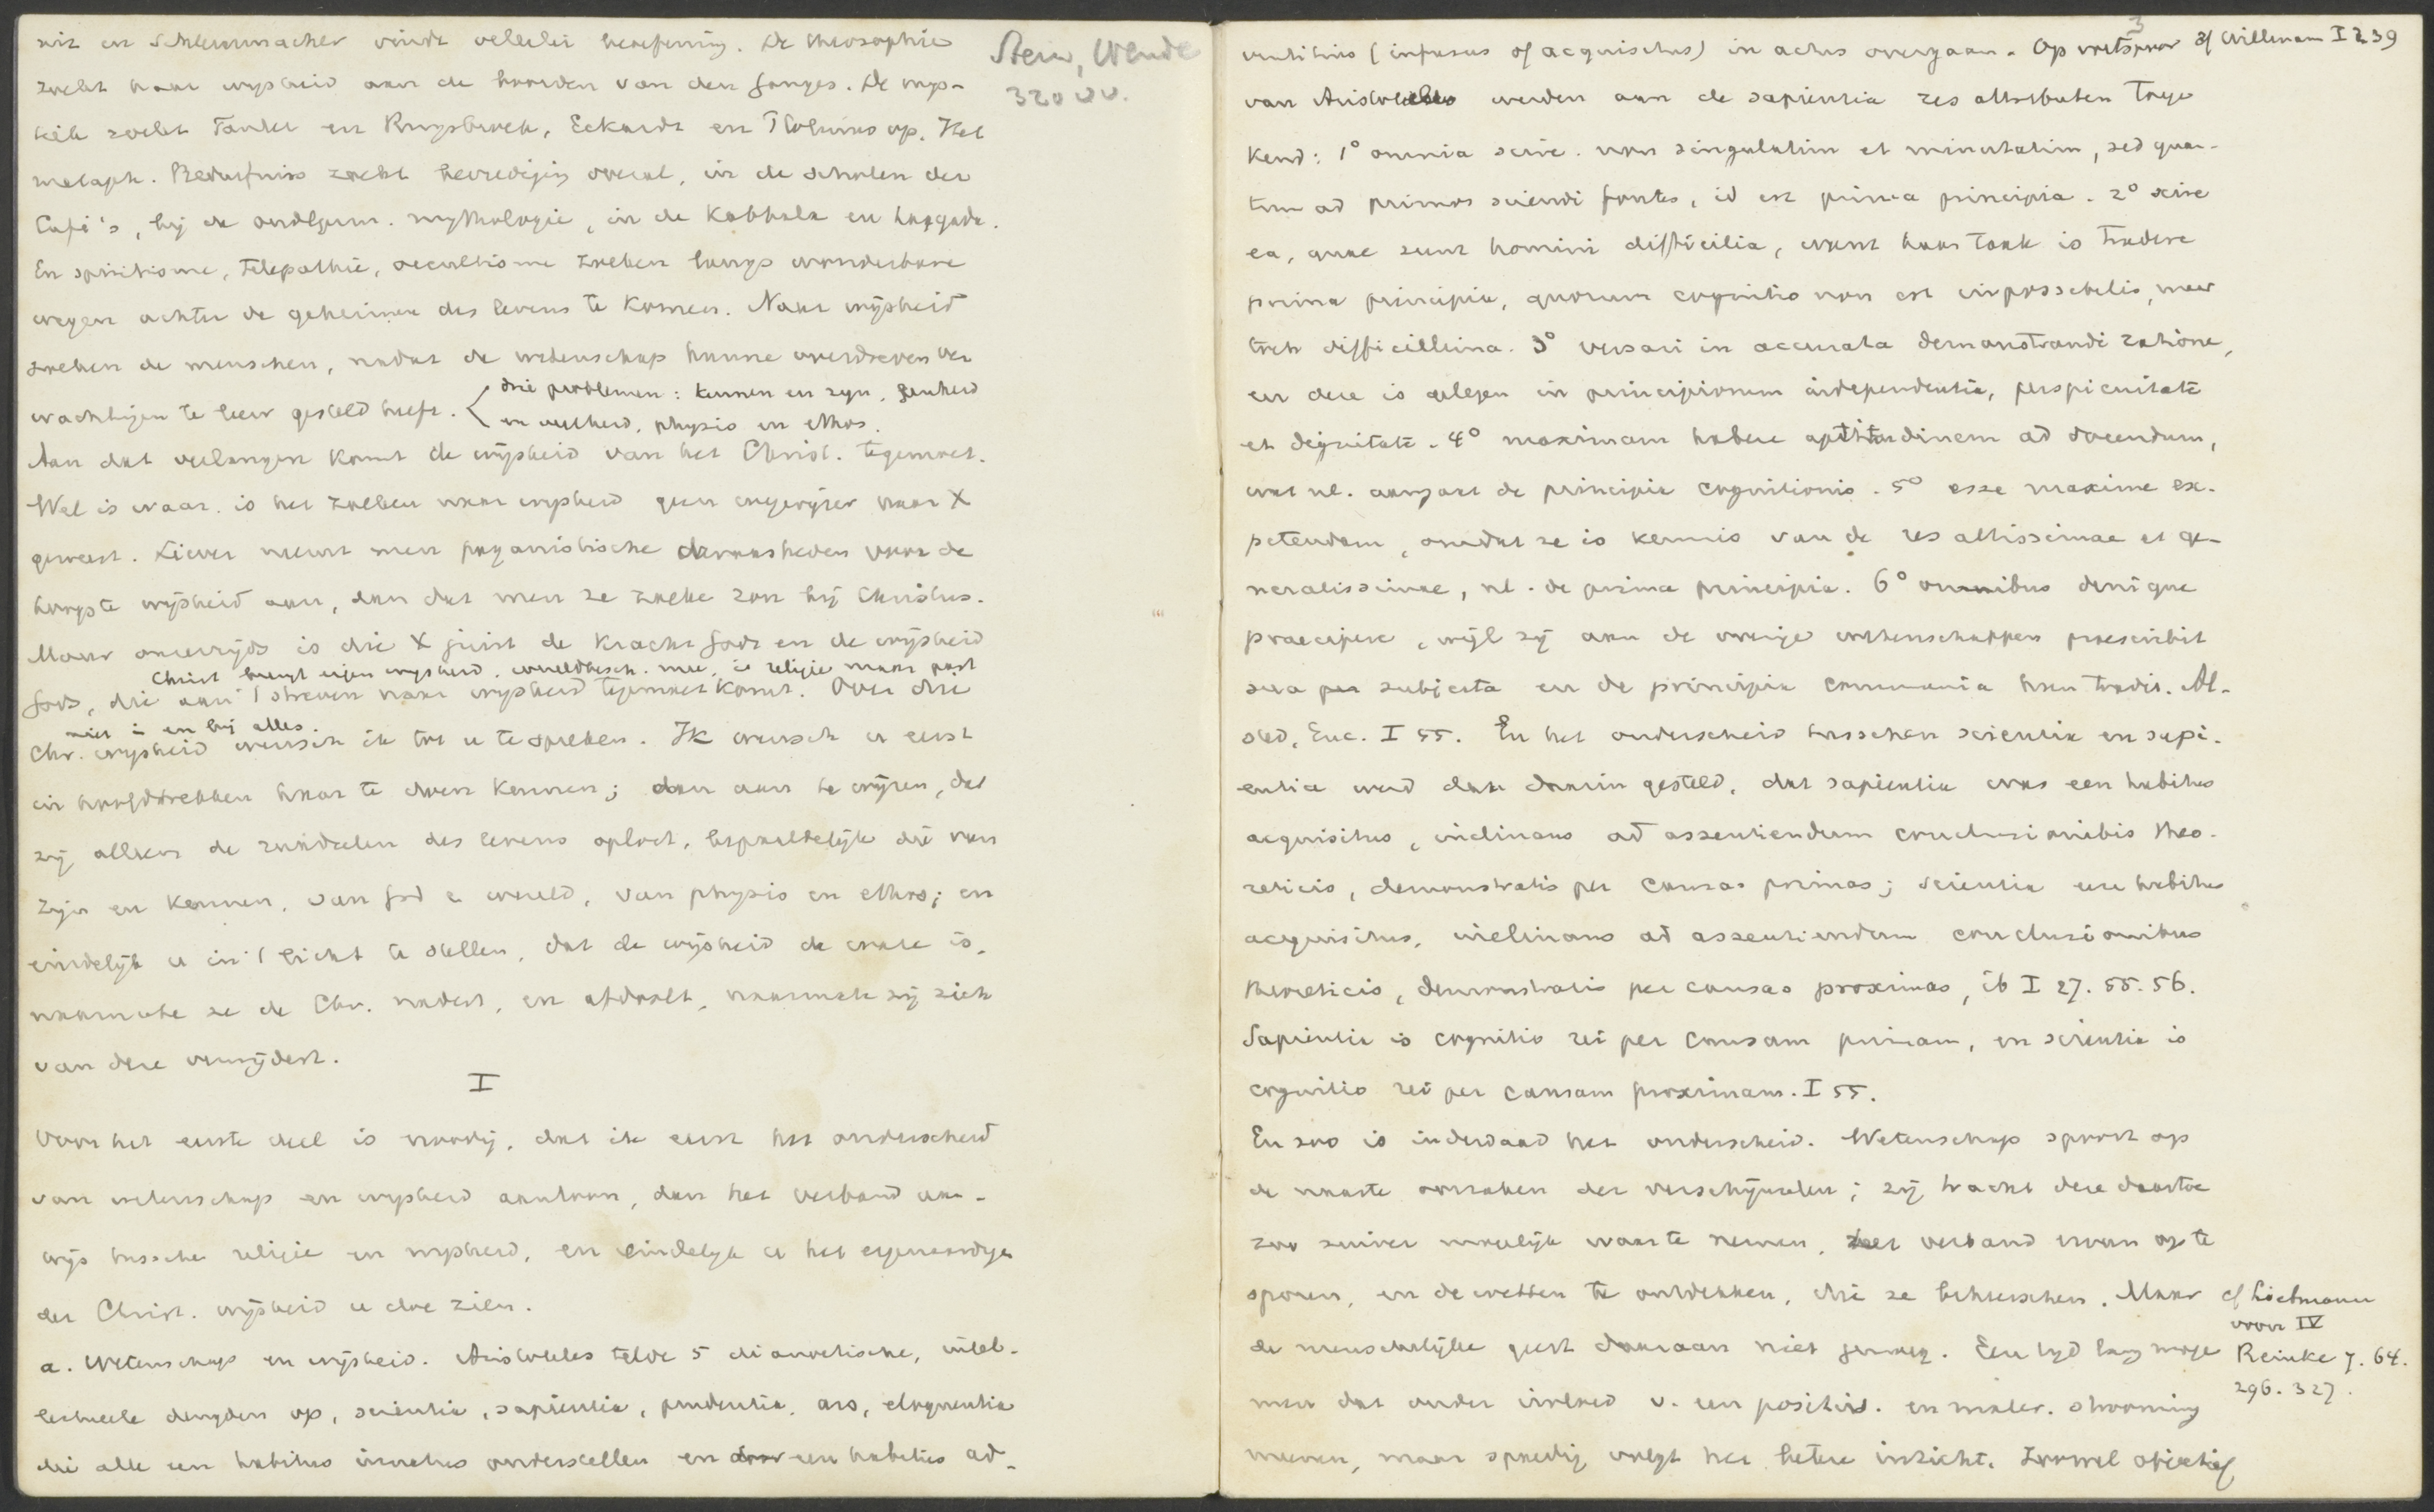 en Schleiermacher vindt velerlei beoefening. De theosophie
zoekt haar wijsheid aan de boorden van den Ganges. De mys-
tiek zoekt Tauler en Ruysbroek, Eckardt en Plotinus op. Het
metaph. Bedürfniss zoekt bevrediging overal, in de scholen der
Cufi's, bij de oudegerm. mythologie, in de Kabbala en haggada.
En spiritisme, telepathie, occultisme zoeken langs wonderbare
wegen achter de geheimen des levens te komen. Naar wijsheid
zoeken de menschen, nadat de wetenschap hunne overdreven ver
wachtingen te leur gesteld heeft.
drie problemen: kennen en zijn, eenheid
en veelheid, physis en ethos.
Aan dat verlangen komt de wijsheid van het Christ. tegemoet.
Wel is waar is het zoeken naar wijsheid geen wegwijzer naar X
geweest. Liever neemt men paganistische dwaasheden voor de
hoogste wijsheid aan, dan dat men ze zoeke zou bij Christus.
Maar onzerzijds is die X juist de kracht Gods en de wijsheid
Christ brengt eigen wijsheid, wereldbesch. mee, is religie maar past
Gods, die aan 't streven naar wijsheid tegemoet komt. Over die
niet in en bij alles.
Chr. wijsheid wensch ik tot u te spreken. Ik wensch u eerst
in hoofdtrekken haar te doen kennen; dan aan te wijzen, dat
zij alleen de raadselen des levens oplost, bepaaldelijk die van
zijn en kennen, van God en wereld, van physis en ethos; en
eindelijk u in 't licht te stellen, dat de wijsheid de ware is,
naarmate ze de Chr. nadert, en afdaalt, naarmate zij zich
van deze verwijdert.
I
Voor het eerste deel is noodig, dat ik eerst het onderscheid
van wetenschap en wijsheid aantoon, dan het verband aan-
wijs tussche religie en wijsheid, en eindelijk u het eigenaardige
der Christ. wijsheid u doe zien.
a. Wetenschap en wijsheid. Aristoteles telde 5 dianoetische, intel-
lectueele deugden op, scientia, sapientia, prudentia, ars, eloquentia
die alle een habitus innatus onderstellen en door een habitus ad-
Stein, Wende
320 vv.
3
cf Willmann I 239
ventitius (infusus of acquisitus) in actus overgaan. Op voetspoor
van Aristoteles werden aan de sapientia zes attributen toege
kend: 1° omnia scire. non singulatim et minutatim, sed quan-
tum ad primos sciendi fontes, id est prima principia. 2° scire
ea, quae sunt homini difficilia, want haar taak is tradere
prima principia, quorum cognitio non est impossibilis, maar
toch difficillima. 3° versari in accurata demonstrandi ratione,
en deze is gelegen in principiorum independentia, perspicuitate
et dignitate. 4° maximam habere aptitudinem ad docendum,
wat nl. aangaat de principia cognitionis. 5° esse maxime ex-
petendam, omdat ze is kennis van de res altissimae et ge-
neralissimae, nl. de prima principia. 6° omnibus denique
praecipere, wijl zij aan de overige wetenschappen praescribit
sua subjecta en de principia communia hun tradit. Al-
sted, Enc. I 55. En het onderscheid tusschen scientia en sapi-
entia werd dan daarin gesteld, dat sapientia was een habitus
acquisitus, inclinans ad assentiendum conclusionibis theo-
reticis, demonstratis per causas primas; scientia een habitus
acquisitus, inclinans ad assentiendum conclusionibus
theoreticis, demonstratis per causas proximas, ib I 27. 55. 56.
Sapientia is cognitio rei per causam primam, en scientia is
cognitio rei per causam proximam. I 55.
En zoo is inderdaad het onderscheid. Wetenschap spoort op
de naaste oorzaken der verschijnselen; zij tracht deze daartoe
zoo zuiver mogelijk waar te nemen, verband ervan op te
sporen, en de wetten te ontdekken, die ze beheerschen. Maar
de menschelijke geest daaraan niet genoeg. Een tijd lang moge
men dat onder invloed v. een positiv. en mater. strooming
meenen, maar spoedig volgt het betere inzicht. Zoowel objectief
cf Liebmann
voor IV
Reinke 7. 64.
296. 327.